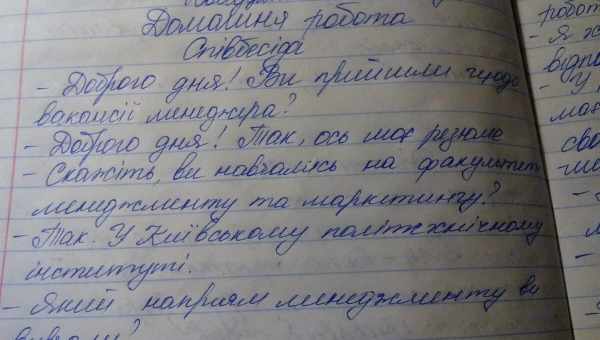 Домашня робота
Співбесіда
- Доброго дня! Ви прийшли щодо
вакансії менеджера?
- Доброго дня! Так, ось моє резюме
- Скажіть, ви навчались на факультеті
менеджменту та маркетингу?
- Так. У Київському політехнічному
інституті.
- Який напрям менеджменту ви
робот
- Я
відпо
- У
мо
сво